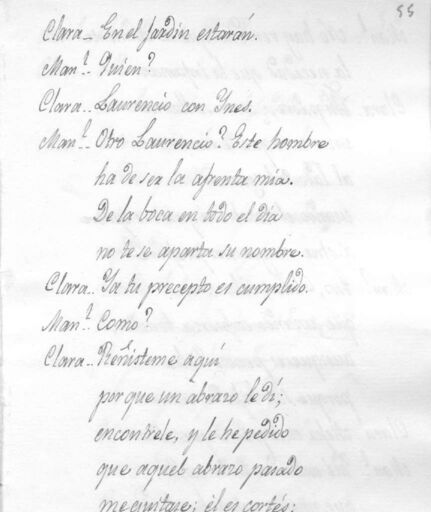 55
Clara.. En el jardin estarán.
Man.l.. Quien?
Clara.. Laurencio con Ynes.
Man.l.. Otro Laurencio? Este hombre
ha de ser la afrenta mia.
De la boca en todo el dia
no te se aparta su nombre.
Clara.. Ya tu precepto es cumplido.
Man.l. Como?
Clara.. Reñisteme aquí
porque un abrazo le dí;
encontrele, y le he pedido
que aquel abrazo pasado
me quitase; él es cortés;